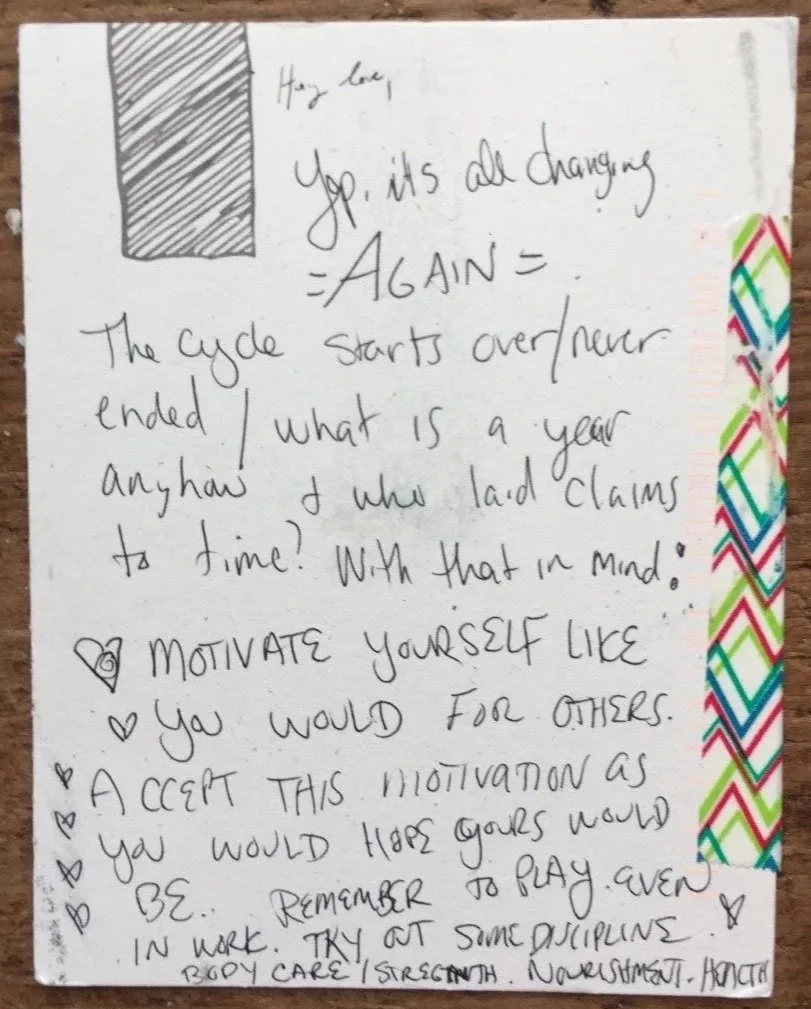 Hey love,
Yep, its all changing
=AGAIN=
The cycle starts over/never
ended / what is a year
anyhow & who laid claims
to time? With that in mind:
MOTIVATE YOURSELF LIKE
YOU WOULD FOR OTHERS.
ACCEPT THIS MOTIVATION AS
YOU WOULD HOPE YOURS WOULD
BE. REMEMBER TO PLAY. EVEN
IN WORK. TRY OUT SOME DISCIPLINE.
BODY CARE / STREGNTH. NOURISHMENT. HEALTH